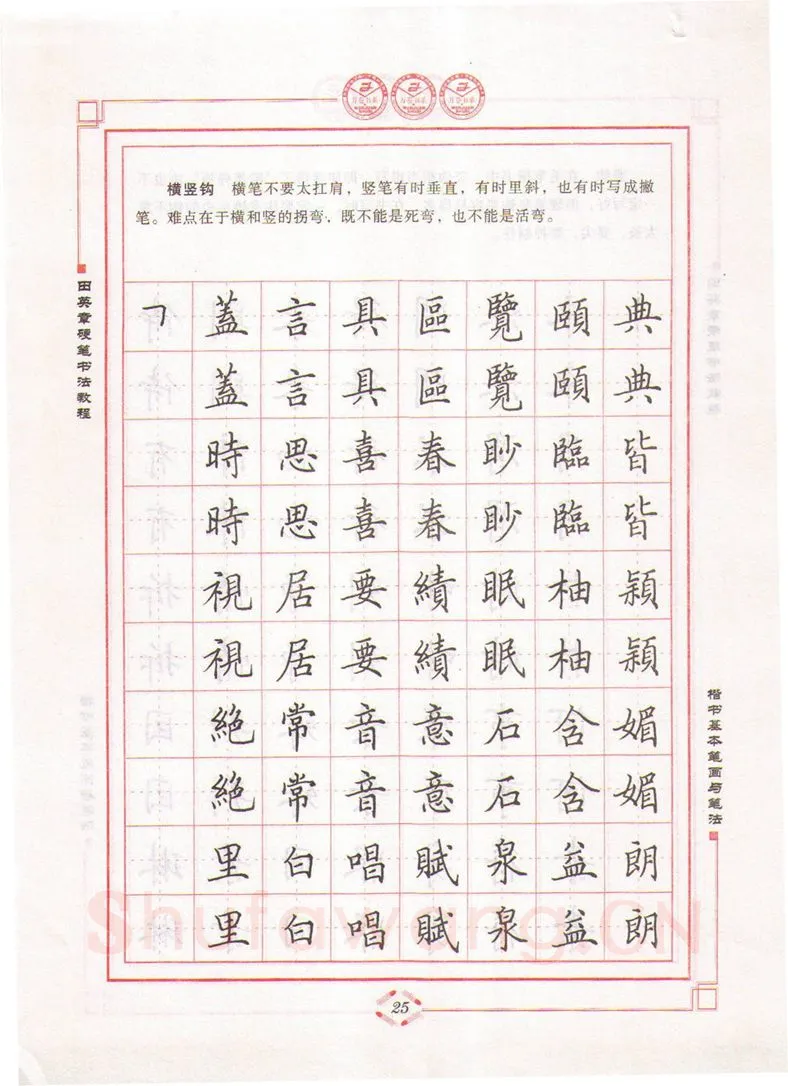 横竖钩 横笔不要太扛肩，竖笔有时垂直，有时里斜，也有时写成撇
笔。难点在于横和竖的拐弯，既不能是死弯，也不能是活弯。
田英章硬笔书法教程
㇕ 蓋 言 具 區 覽 頤 典
蓋 言 具 區 覽 頤 典
時 思 喜 春 眇 臨 皆
時 思 喜 春 眇 臨 皆
視 居 要 績 眠 柚 潁
視 居 要 績 眠 柚 潁
絕 常 音 意 石 含 媚
絕 常 音 意 石 含 媚
里 白 唱 賦 泉 益 朗
里 白 唱 賦 泉 益 朗
楷书基本笔画与笔法
Shufawang.CN
25